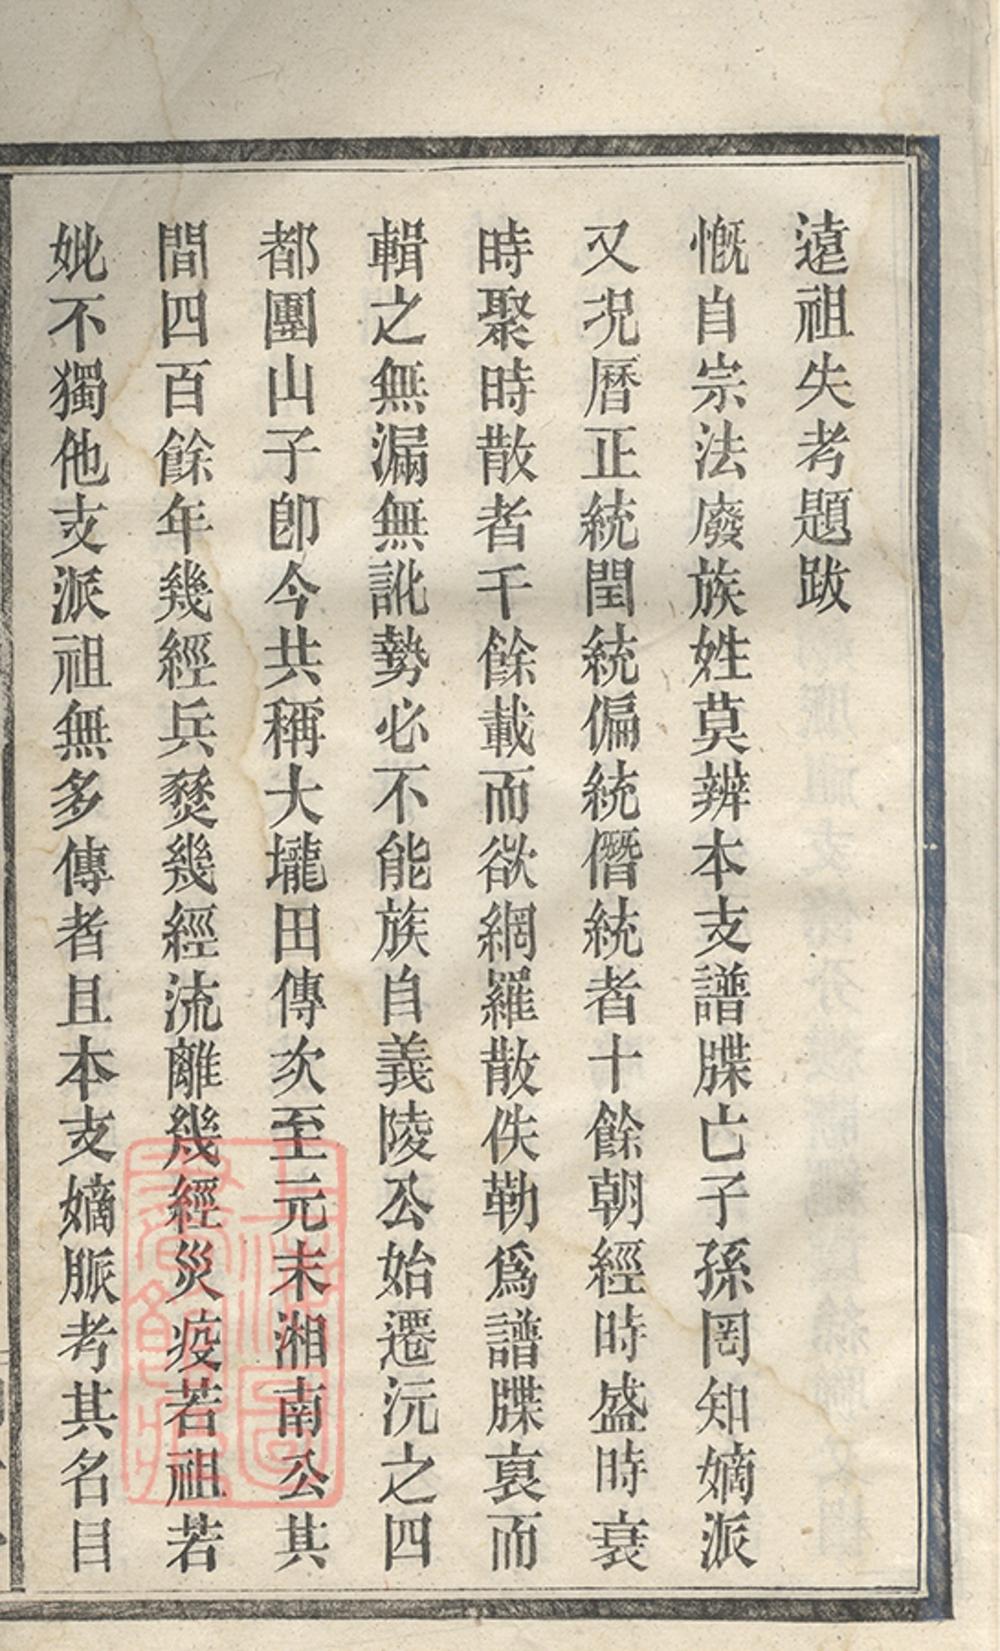 遠祖失考題跋
慨自宗法廢族姓莫辨本支譜牒亡子孫罔知嫡派
又况曆正統閏統偏統僭統者十餘朝經時盛時衰
時聚時散者千餘載而欲網羅散佚勒爲譜牒裒而
輯之無漏無訛勢必不能族自義陵公始遷沅之四
都團山子卽今共稱大壠田傳次至元末湘南公其
間四百餘年幾經兵燹幾經流離幾經災疫若祖若
妣不獨他支派祖無多傳者且本支嫡脈考其名目
上海圖
書館藏